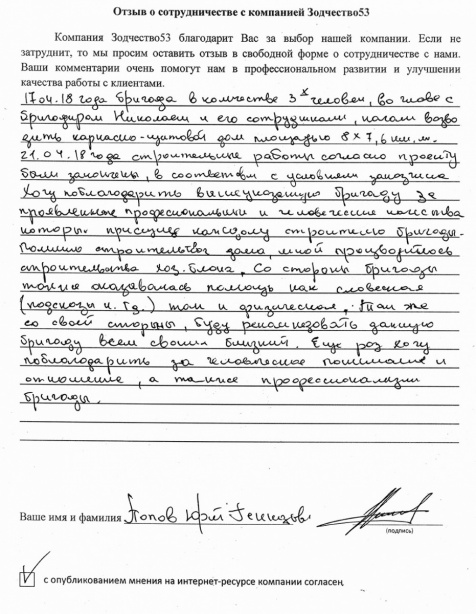 Отзыв о сотрудничестве с компанией Зодчество53
Компания Зодчество53 благодарит Вас за выбор нашей компании. Если не
затруднит, то мы просим оставить отзыв в свободной форме о сотрудничестве с нами.
Ваши комментарии очень помогут нам в профессиональном развитии и улучшении
качества работы с клиентами.
17.04.18 года бригада в количестве 3х человек, во главе с
бригадиром Николаем и его сотрудниками, начали возво
дить каркасно-щитовой дом площадью 8 х 7,6 кв.м.
21.04.18 года строительные работы согласно проекту
были закончены, в соответсв с условием заказчика
Хочу поблагодарить вышеуказанную бригаду за
проявленные профессиональные и человеческие качества
которы. присущие каждому строителю бригады.
Помимо строительство дома, мной производилось
строительство хоз. блока, Со стороны бригады
также оказывалась помощь как словесная
(подсказы и. т.д.) так и физическая, Так же
со своей стороны, буду рекомендовать данную
бригаду всем своим близким. Еще раз хочу
поблагодарить за человеческое понимание и
отношение, а также профессионализм
бригады.
Ваше имя и фамилия Попов Юрий
(подпись)
с опубликованием мнения на интернет-ресурсе компании согласен,